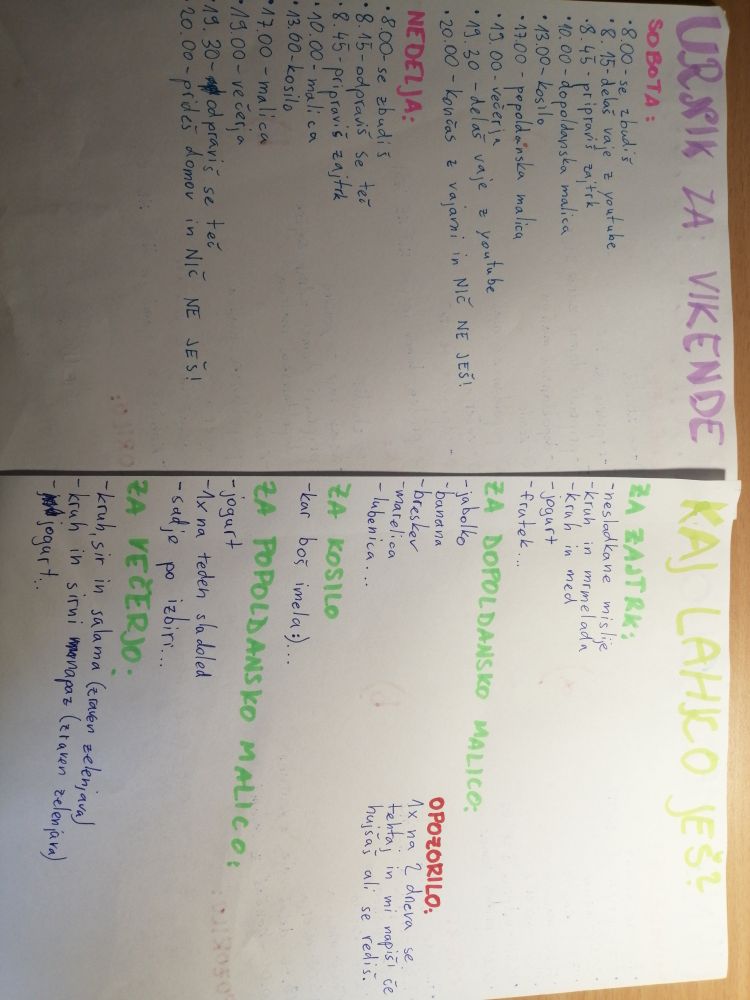 URNIK ZA VIKENDE
SOBOTA:
• 8.00 - se zbudiš
• 8.15 - delaš vaje z youtube
• 8.45 - pripraviš zajtrk
• 10.00 - dopoldanska malica
• 13.00 - kosilo
• 17.00 - popoldanska malica
• 19.00 - večerja
• 19.30 - delaš vaje z youtube
• 20.00 - končaš z vajami in NIČ NE JEŠ!
NEDELJA:
• 8.00 - se zbudiš
• 8.15 - odpraviš se teč
• 8.45 - pripraviš zajtrk
• 10.00 - malica
• 13.00 - kosilo
• 17.00 - malica
• 19.00 - večerja
• 19.30 - odpraviš se teč
• 20.00 - prideš domov in NIČ NE JEŠ!
KAJ LAHKO JEŠ?
ZA ZAJTRK:
- nesladkane mislije
- kruh in mrmelada
- kruh in med
- jogurt
- frutek..
ZA DOPOLDANSKO MALICO:
- jabolko
- banana
- breskev
- marelica
- lubenica...
OPOZORILO:
1x na 2 dneva se
tehtaj in mi napiši če
hujšaš ali se rediš.
ZA KOSILO
- kar boš imela:)...
ZA POPOLDANSKO MALICO:
- jogurt
- 1x na teden sladoled
- sadje po izbiri...
ZA VEČERJO:
- kruh, sir in salama (zraven zelenjava)
- kruh in sirni namaz (zraven zelenjava)
- jogurt..